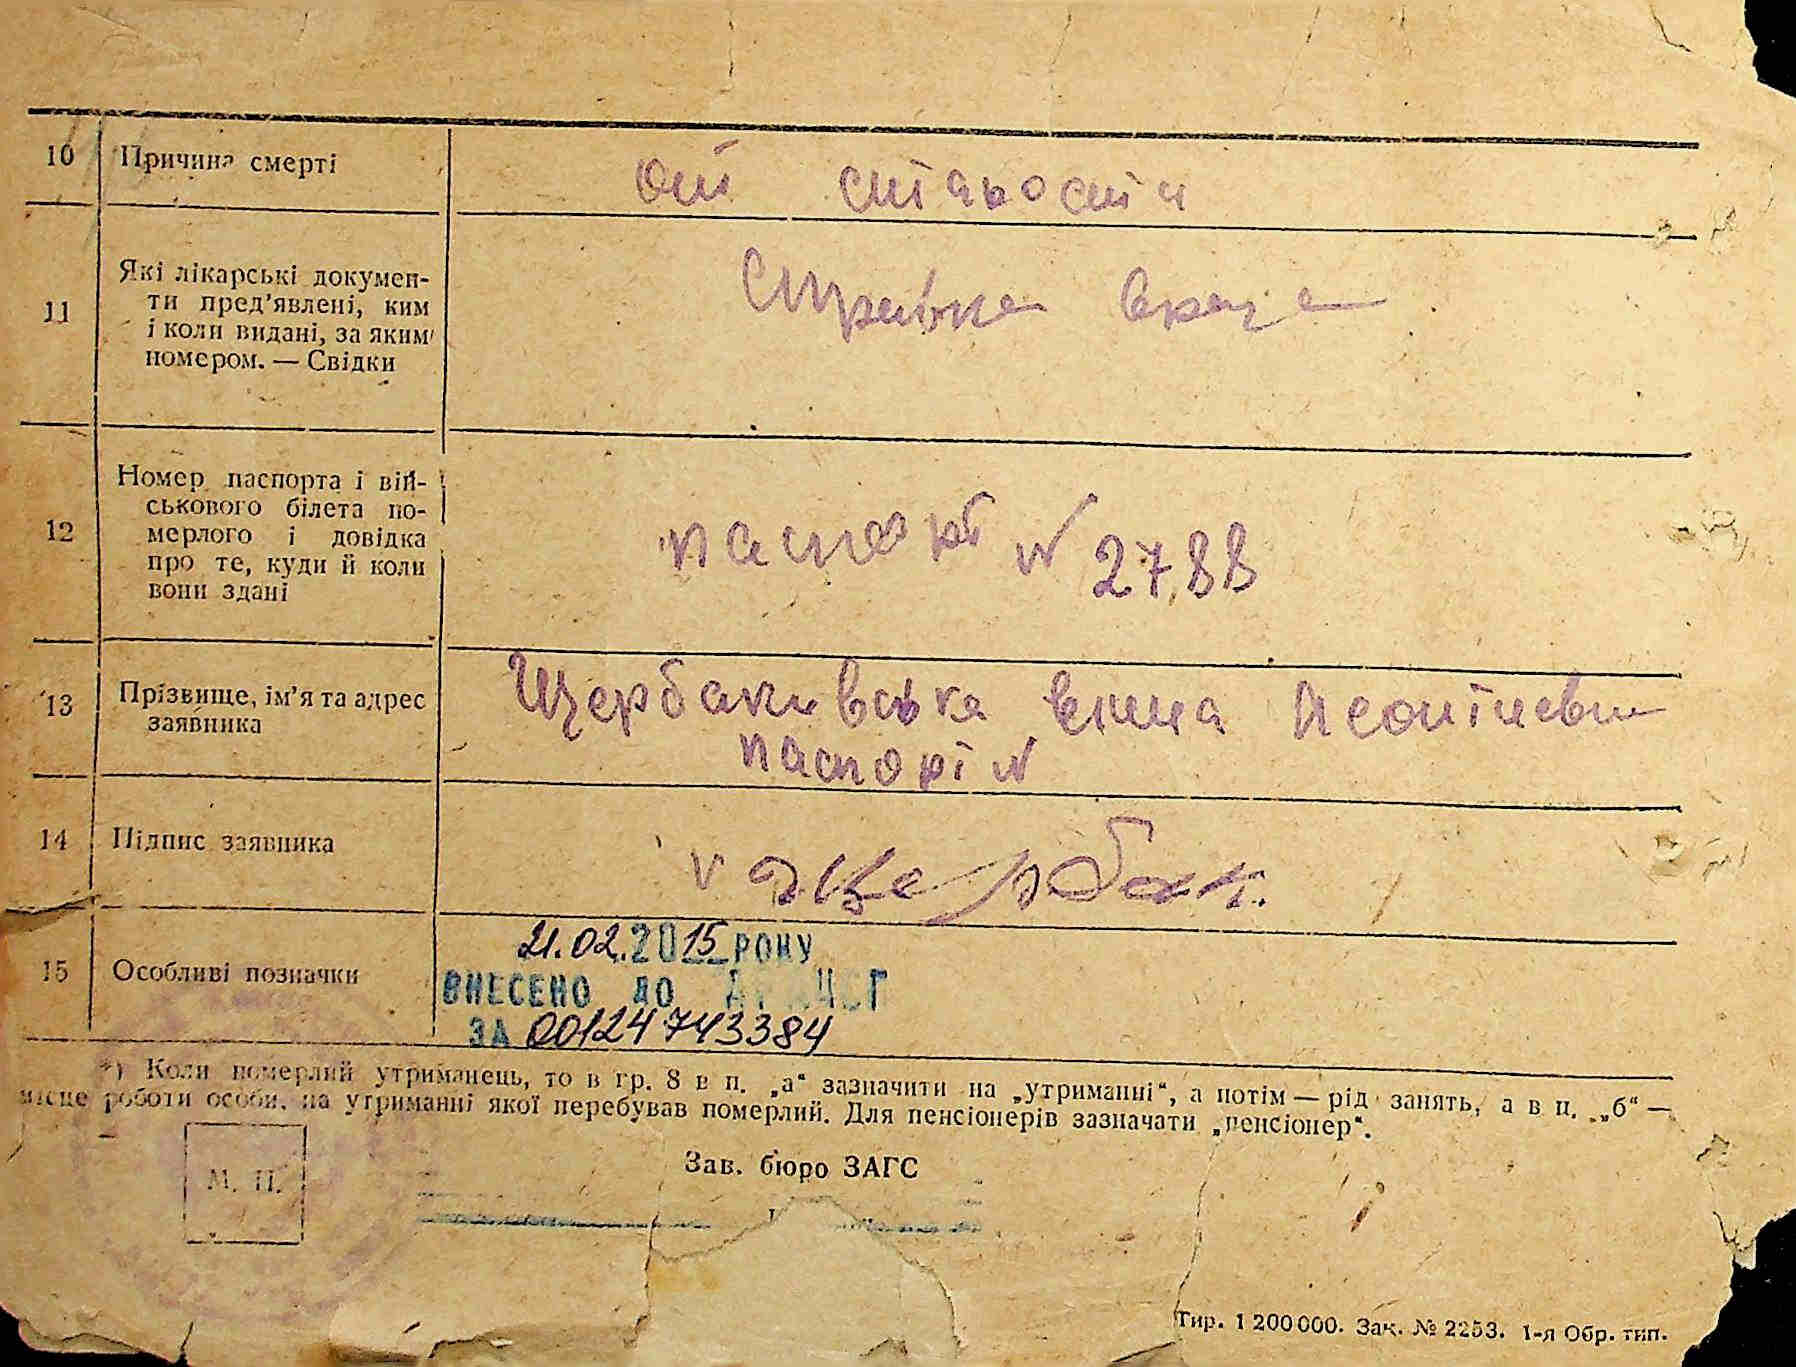 10 Причина смерті
от старости
11 Які лікарські докумен-
ти пред'явлені, ким
і коли видані, за яким
номером. — Свідки
Справка врача
12 Номер паспорта і вій-
ськового білета по-
мерлого і довідка
про те, куди й коли
вони здані
паспорт N 2788
13 Прізвище, ім'я та адрес
заявника
Щербаківська
паспорт N
14 Підпис заявника
V Щербак.
15 Особливі позначки
21.02.2015 РОКУ
ВНЕСЕНО ДО ДРАЦСГ
ЗА 00124743384
*) Коли померлий утриманець, то в гр. 8 в п. „а“ зазначити на „утриманні“, а потім — рід занять, а в п. „б“ —
місце роботи особи, на утриманні якої перебував померлий. Для пенсіонерів зазначати „пенсіонер“.
М. П.
Зав. бюро ЗАГС
Тир. 1 200 000. Зак. № 2253. 1-я Обр. тип.